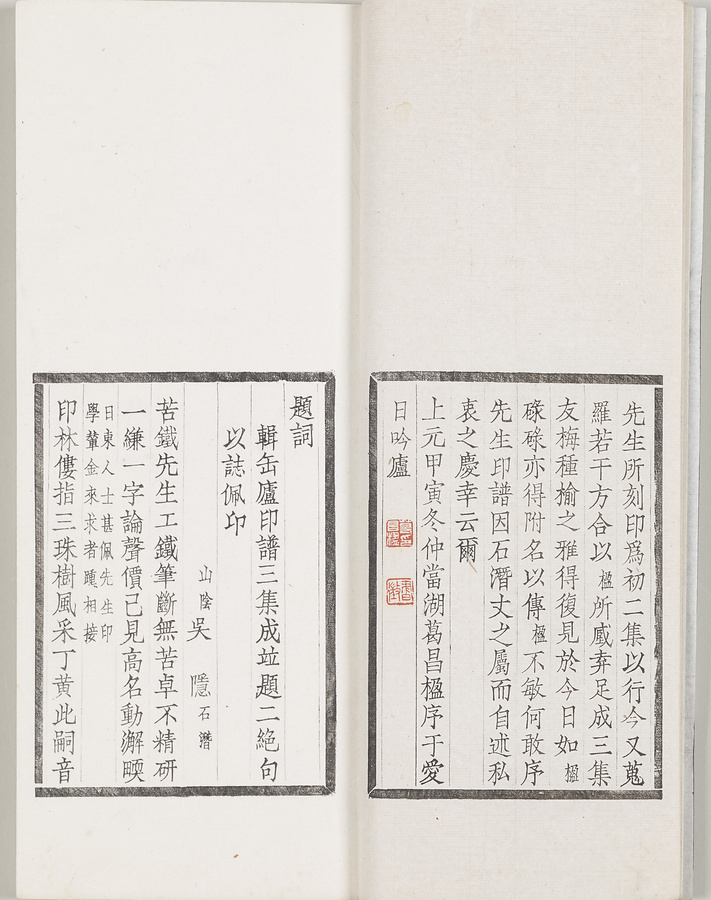 先生所刻印爲初二集以行今又蒐
羅若干方合以楹所臧弆足成三集
友梅種榆之雅得復見於今日如楹
碌碌亦得附名以傳楹不敏何敢序
先生印譜因石潛丈之屬而自述私
衷之慶幸云爾
上元甲寅冬仲當湖葛昌楹序于愛
日吟廬
題詞
輯缶廬印譜三集成竝題二絕句
以誌佩卬
山陰吳隱石潛
苦鐵先生工鐵筆斷無苦卓不精研
一縑一字論聲價已見高名動澥堧
日東人士甚佩先生印
學輦金來求者踵相接
印林僂指三珠樹風采丁黃此嗣音